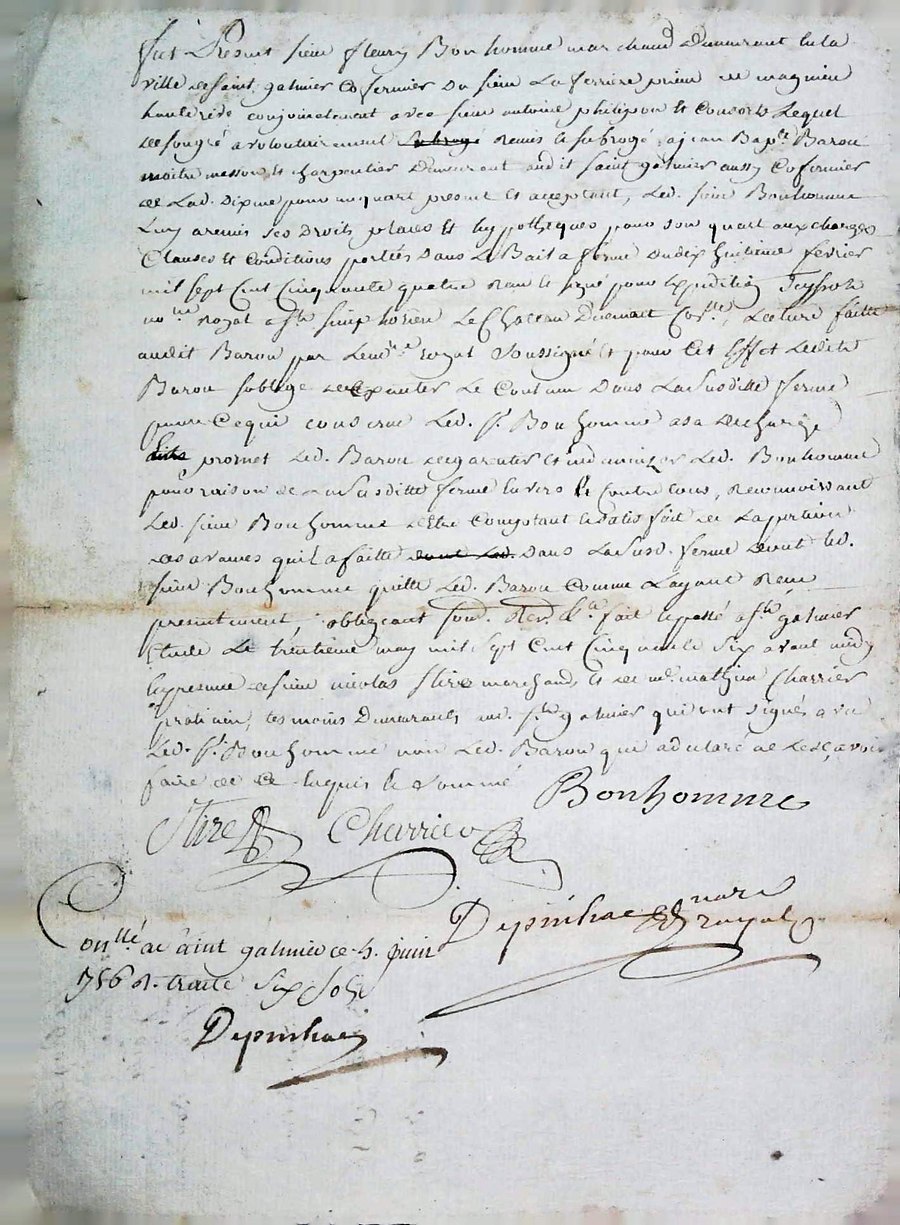 fut Present sieur fleury Bonhomme marchand Demeurant en la
ville de saint galmier Cofermier du sieur La ferriere prieur de magnieu
hauterive conjointement avec sieur antoine philipon et Consorts Lequel
de son gré a volontairement subrogé Remis et subrogé, a jean Bapte. Barou
maitre masson et charpentier Demeurant audit saint galmier aussy Cofermier
de Lad. Dixme pour un quart present et acceptant, Led. sieur Bonhomme
Luy a remis ses Droits places et hypotheques pour son quart aux charges
Clauses et Conditions portées dans Le Bail a ferme du dix huitieme fevrier
mil sept Cent Cinquante quatre Reçu et signé pour Expedition Teyssot
nore. royal a St. simphorien Le Chateau Duement Coll. Lecture faitte
audit Barou par Le nore. royal soussigné et pour Cet Effet Ledit
Barou s'oblige d'Executer Le Contenu Dans La susditte ferme
pour Ce qui Concerne Led. sr. Bonhomme a sa decharge
promet Led. Barou de garentir et indemniser Led. Bonhomme
pour raison de La susditte ferme Envers et Contre tous, Reconnoissant
Led. sieur Bonhomme d'Etre Comptant et satisfait de La portion
des avances qu'il a faitte dont Led. Dans La susd. ferme dont led.
sieur Bonhomme quitte Led. Barou Comme L'ayant Reçu
presentement, obligeant soud. Ren. &ca. fait et passé a St. galmier
Etude Le trentieme may mil sept Cent Cinquante six avant midy
En presence de sieur nicolas stire marchand, et de me. mathieu Charrier
praticien, temoins Demeurants aud. St. galmier qui ont signé avec
Led. sr. Bonhomme non Led. Barou qui a declaré ne Le sçavoir
faire de ce Enquis et sommé
Bonhomme
Stire Charrier
Depinhac nore. royal
Conllé. a saint galmier ce 5. juin
1756 R. traité six sols
Depinhac